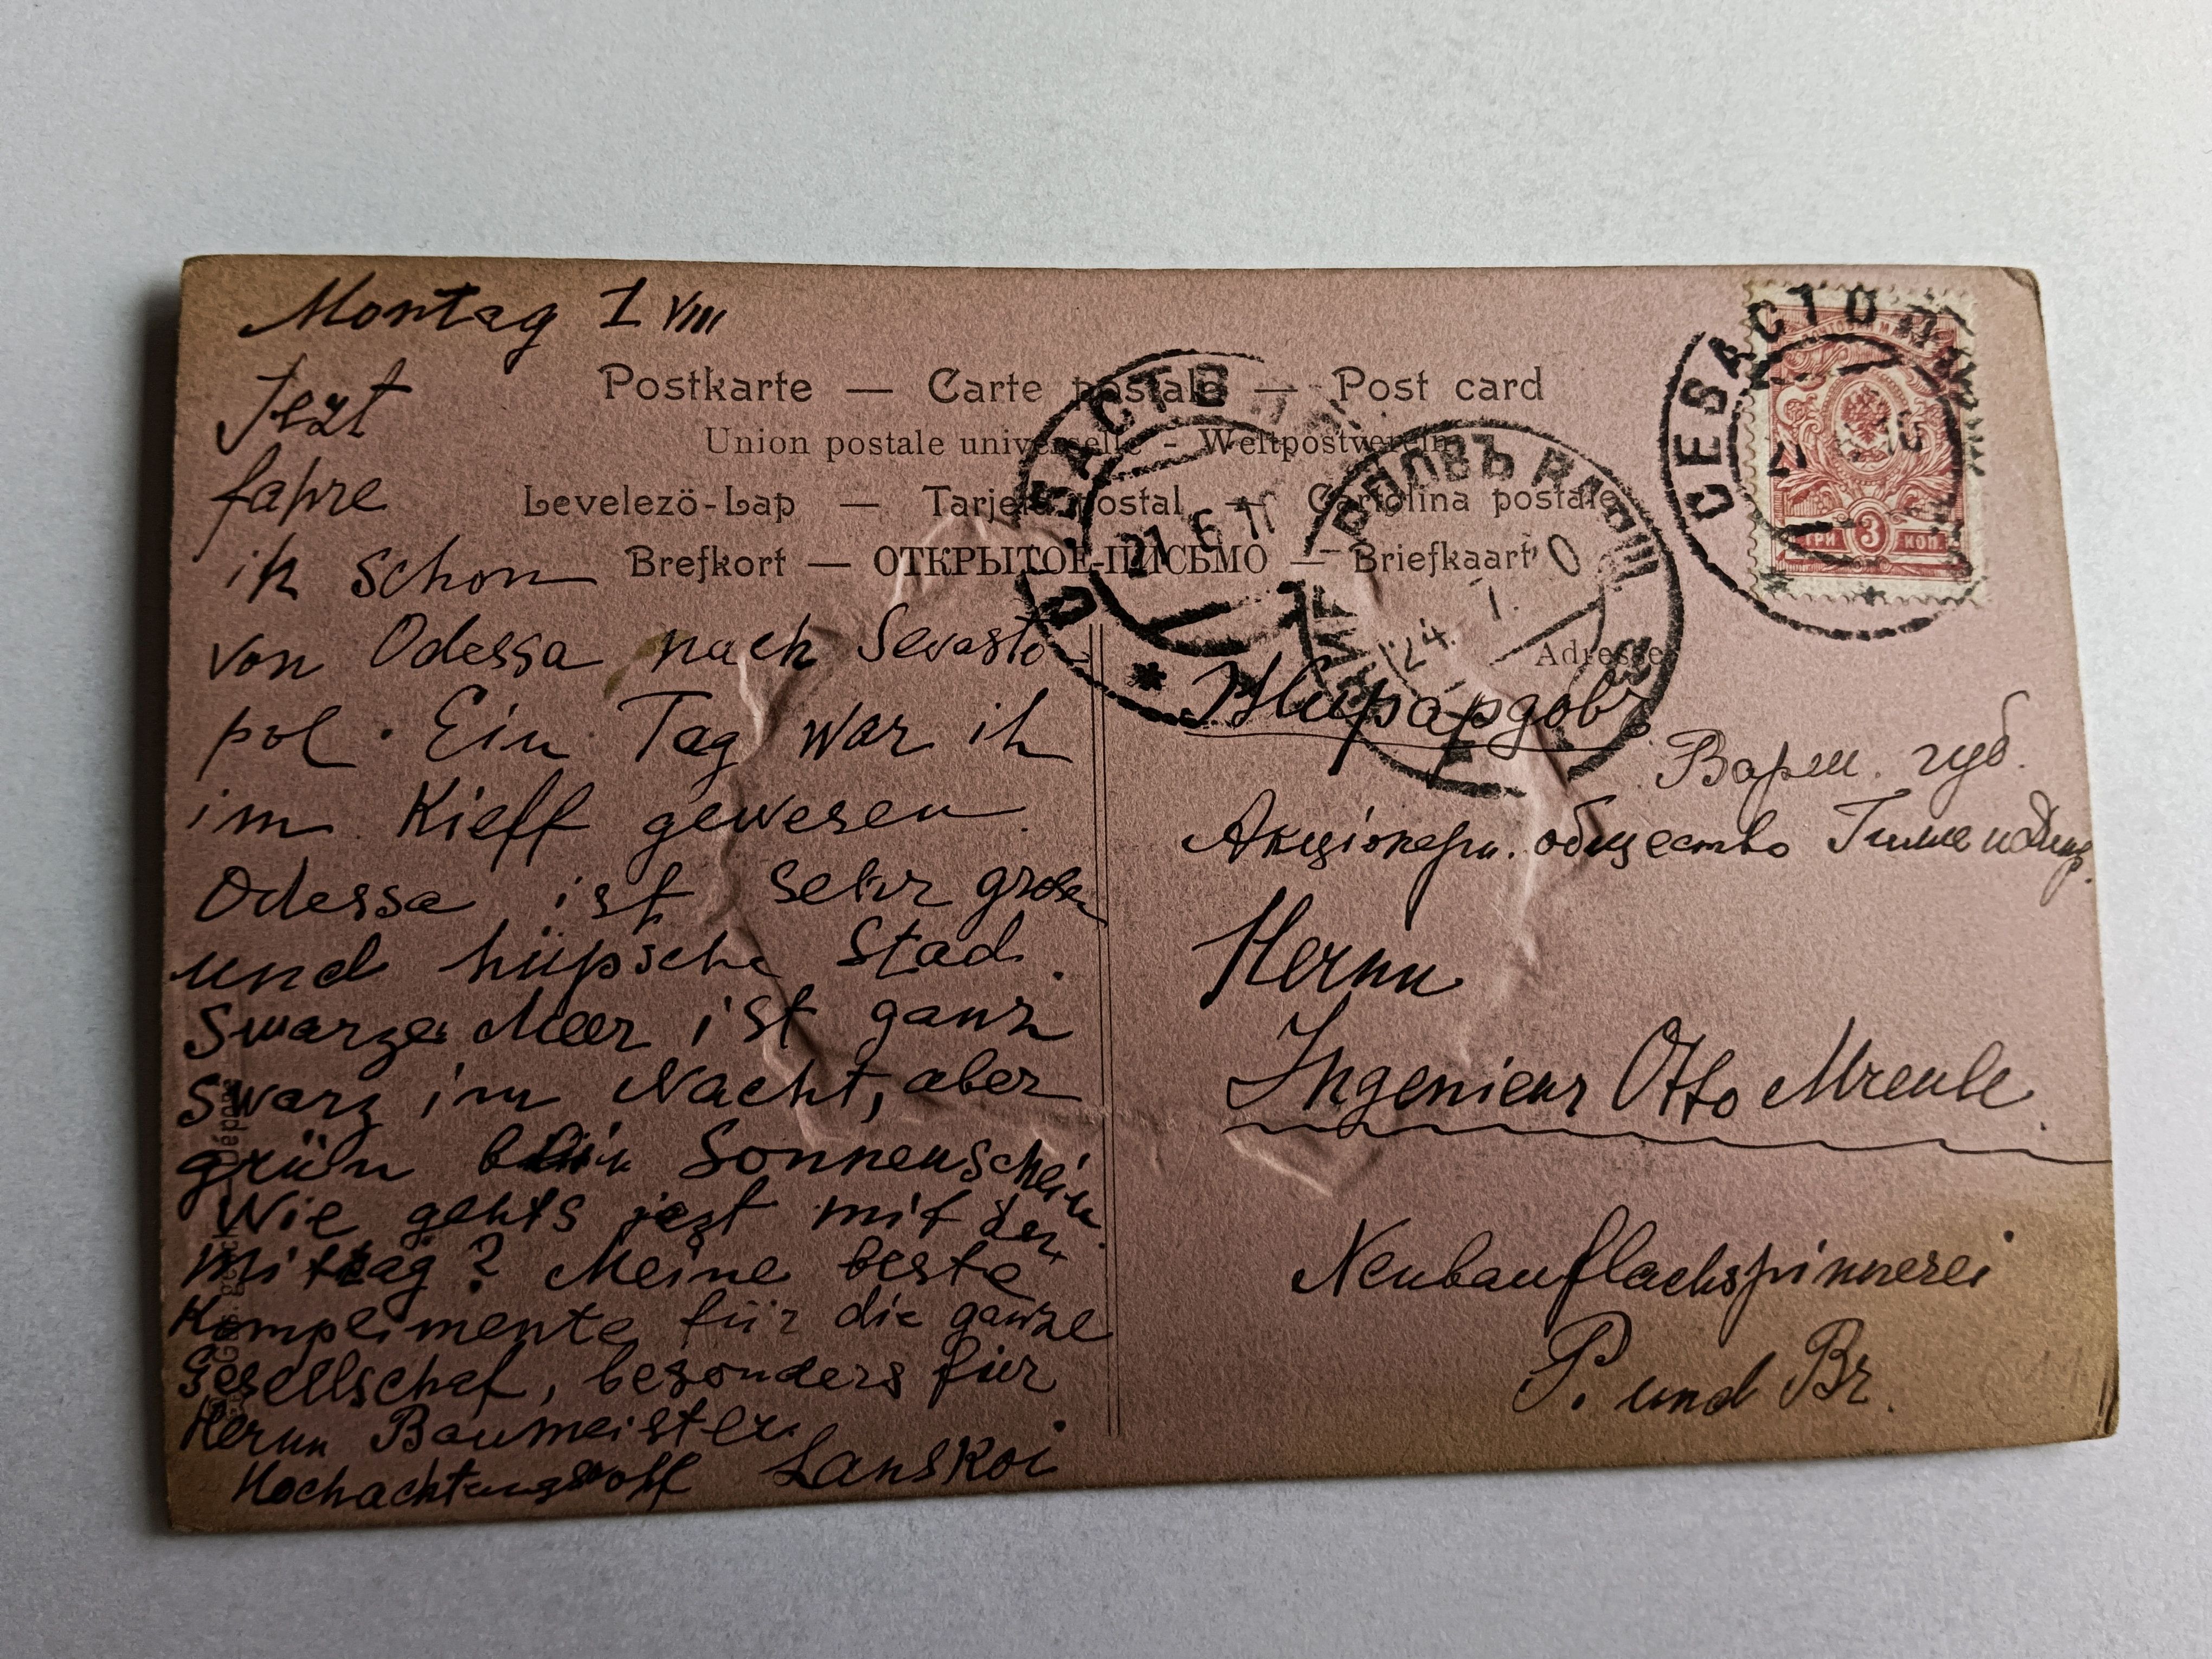 Montag 1 VIII
Postkarte — Carte postale — Post card
Union postale universelle - Weltpostverein
Levelező-Lap — Tarjeta postal — Cartolina postale
Brefkort — ОТКРЫТОЕ-ПИСЬМО — Briefkaart
Jezt
fahre
ih schon
von Odessa nach Sevasto
pol. Ein Tag war ih
im Kieff gewesen.
Odessa ist sehr
und hüpsche Stad.
Swarze Meer ist ganz
swarz im Nacht, aber
grün Sonnenschein.
Wie gehts jezt mit der
mittag? Meine beste
Komplimente für die ganze
Gesellschaf, besonders für
Hernn Baumeister.
Hochachtungsvoll Lanskoi
СЕВАСТОПОЛЬ
СЕВАСТОП
21 6
24.
3
ТРИ КОП.
Adresse
Жирардовъ
Варш. губ.
Акціонерн. общество Гилле и Дитр.
Hernn
Ingenieur Otto Mreule
Neubauflachspinnerei
P. und Br.